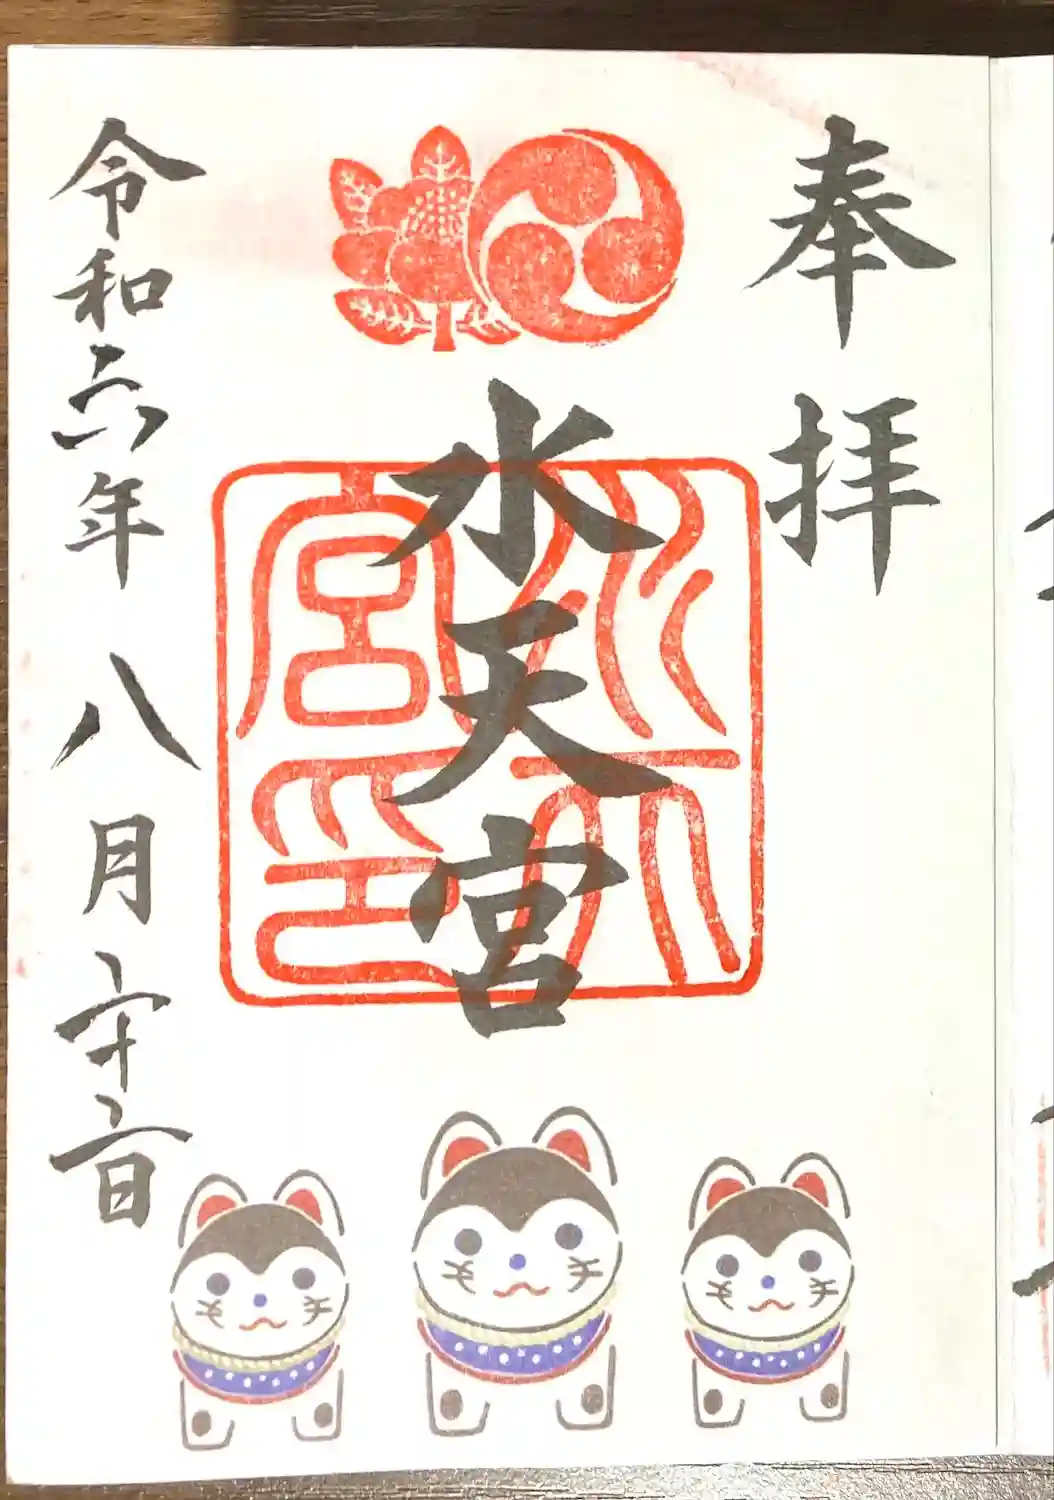 奉拝
水天宮
水天宮印
令和六年八月二十二日